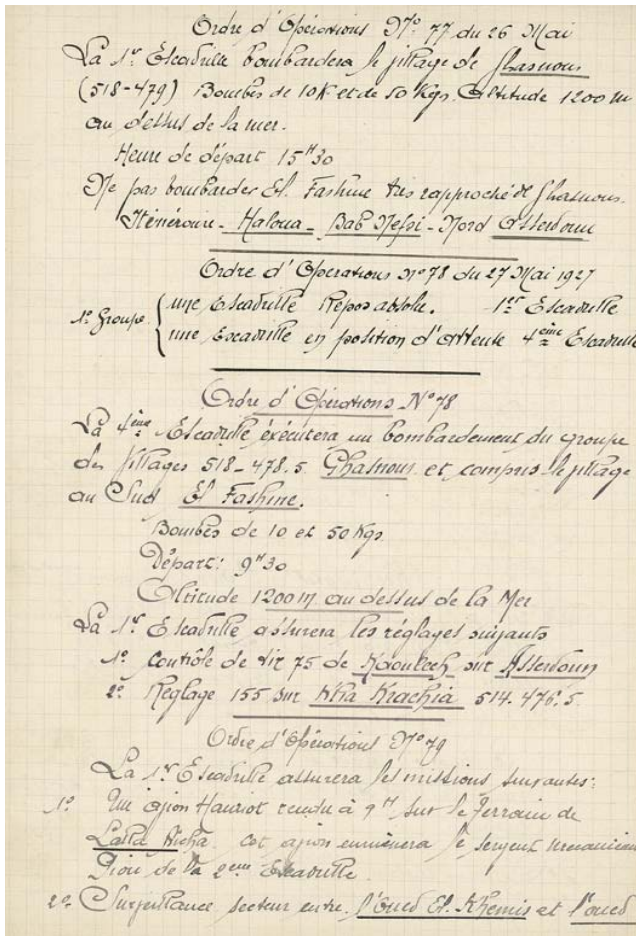 Ordre d'Opérations N° 77 du 26 Mai
La 1re Escadrille bombardera le village de Ghasnous
(518-479) Bombes de 10K et de 50 Kgs. Altitude 1200 m
au dessus de la mer.
Heure de départ 15H30
Ne pas bombarder El. Fashine très rapproché de Ghasnous.
Itinéraire - Haloua - Bab Nefsi - Nord Asserdoun
Ordre d'Opérations N° 78 du 27 Mai 1927
1° Groupe { une Escadrille Repos absolu. 1re Escadrille
une Escadrille en position d'attente 4ème Escadrille
Ordre d'Opérations N° 78
La 4ème Escadrille éxécutera un bombardement du groupe
des villages 518-478.5 Ghasnous et compris le village
au Sud El Fashine.
Bombes de 10 et 50 Kgs
Départ: 9H30
Altitude 1200m au dessus de la Mer
La 1re Escadrille assurera les réglages suivants
1° Contrôle de tir 75 de Kaoulech sur Asserdoun
2° Réglage 155 sur Krachia 514.476.5
Ordre d'Opérations N° 79
La 1re Escadrille assurera les missions suivantes:
1° Un avion Hanriot rendu à 9H sur le Terrain de
Lalla cet avion emmènera le sergent mécanicien
de la 2eme Escadrille
2° Surveillance secteur entre l'oued El. Khemis et l'oued